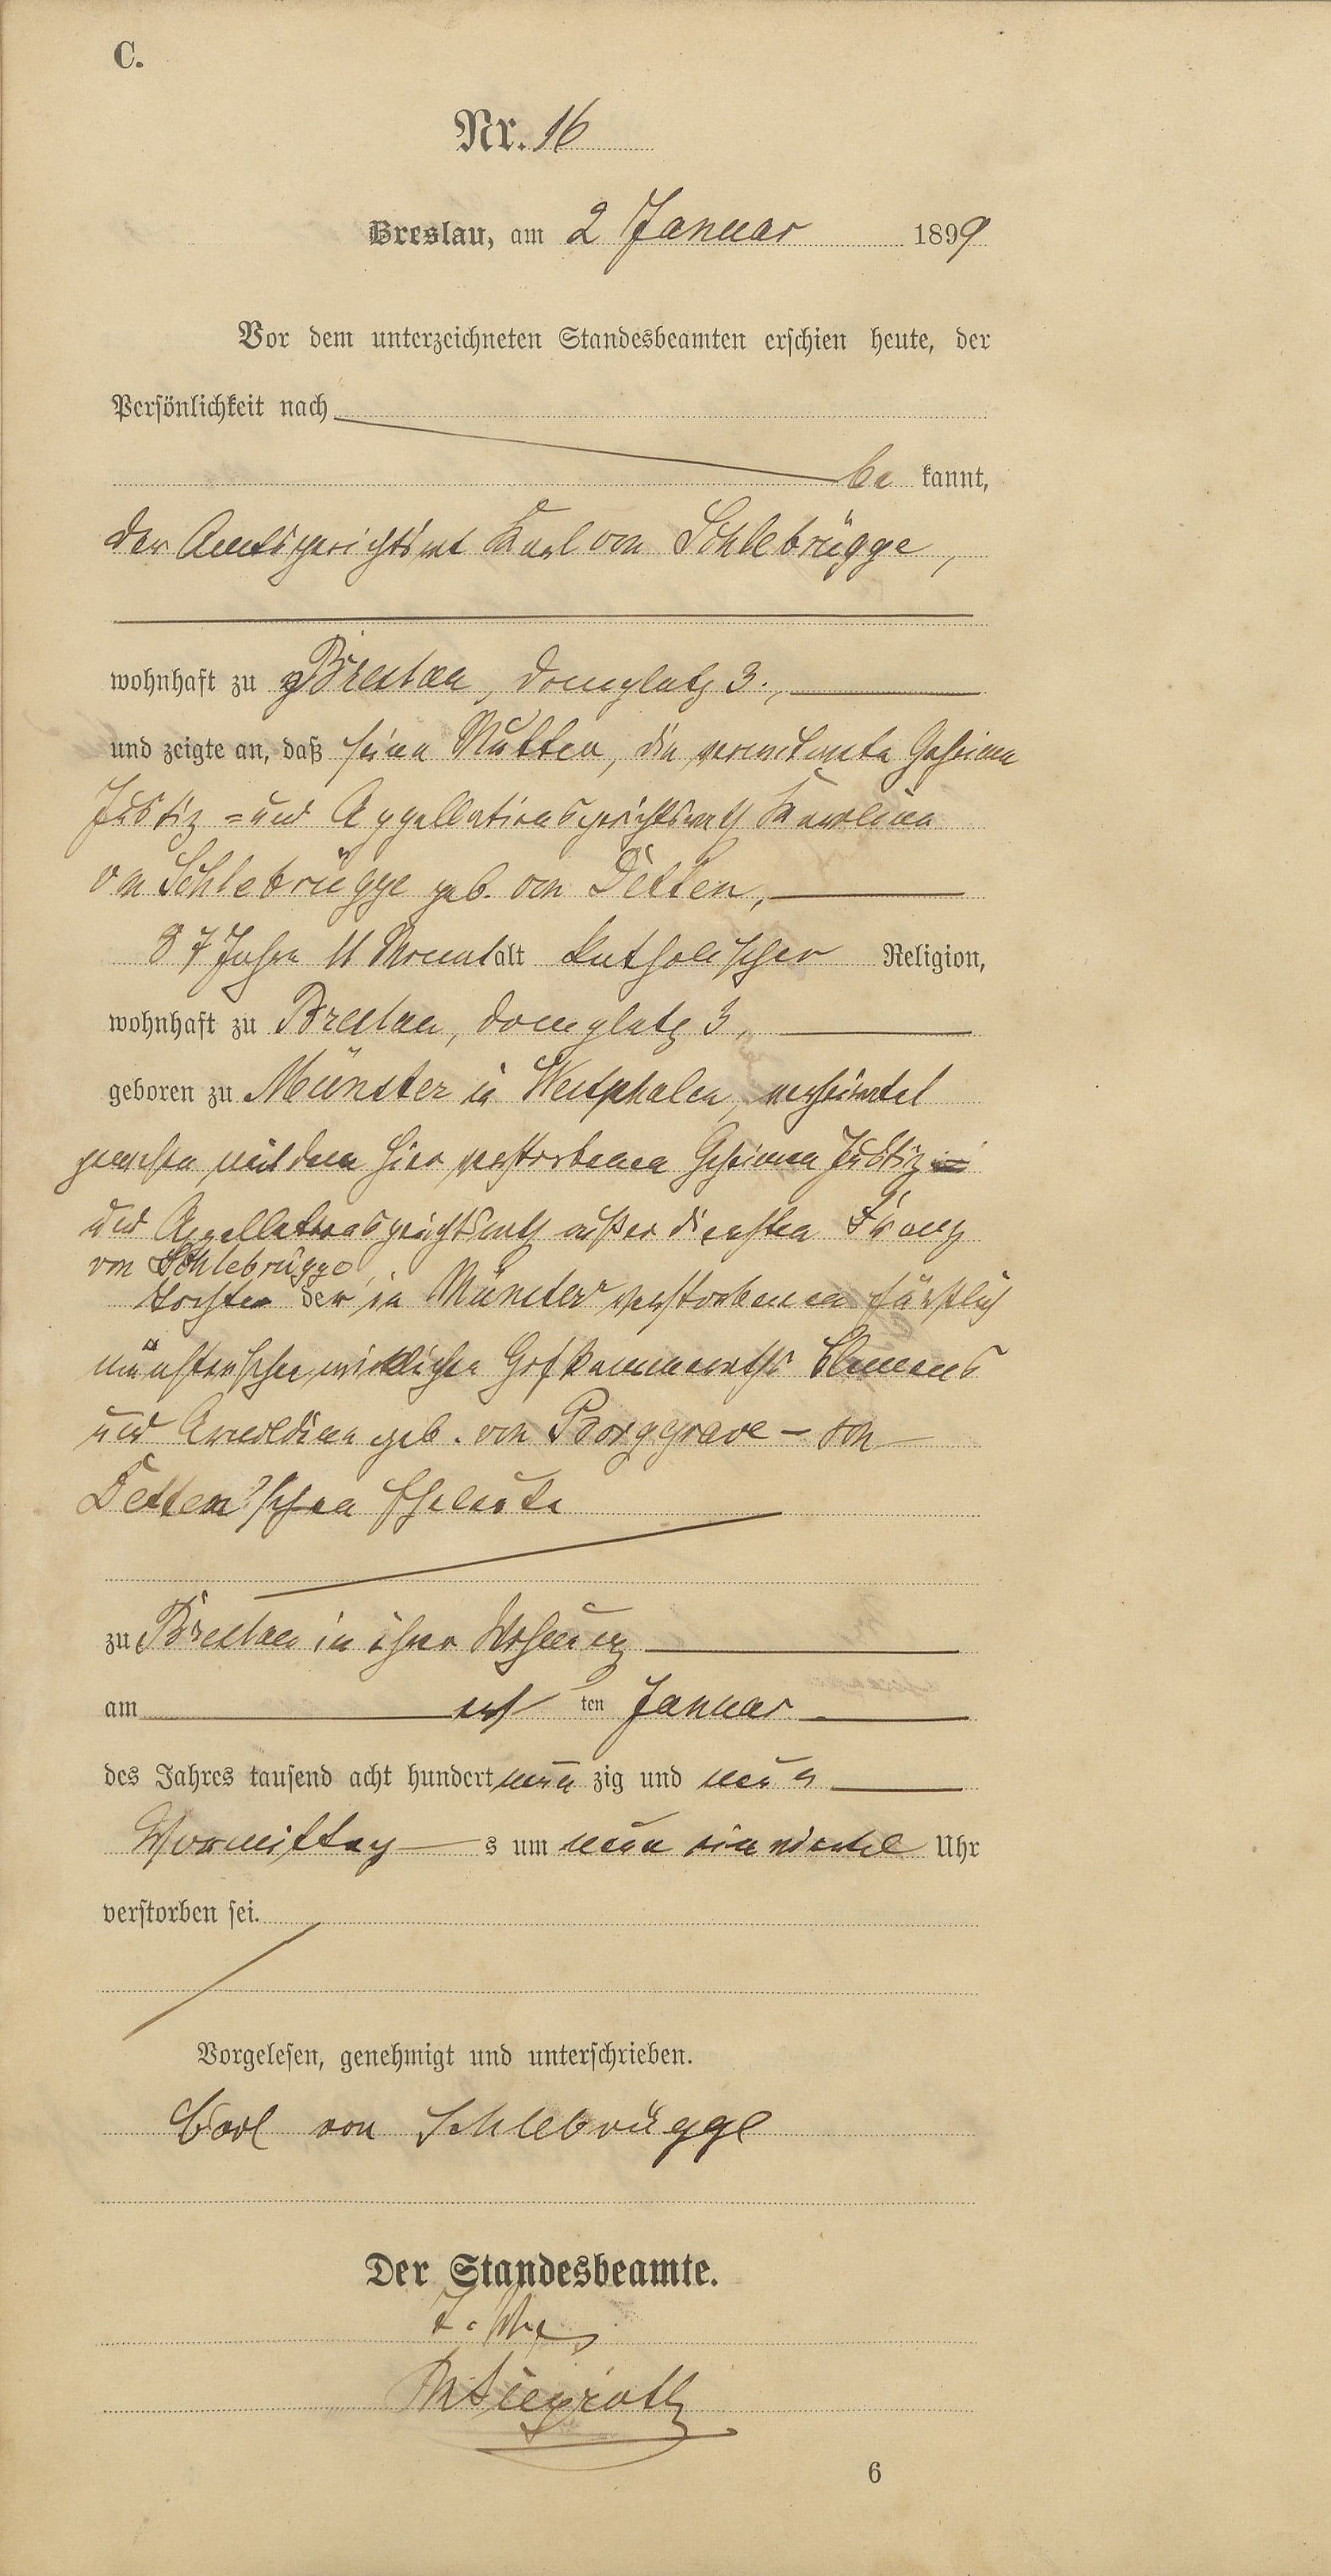 C.
Nr. 16
Breslau, am 2 Januar 1899
Vor dem unterzeichneten Standesbeamten erschien heute, der
Persönlichkeit nach
be kannt,
der Amtsgerichtsrat Karl von Schlebrügge,
wohnhaft zu Breslau, Domplatz 3.,
und zeigte an, daß seine Mutter, die verwitwete Geheime
Justiz = und Appellationsgerichtsrath Karoline
von Schlebrügge geb. von Detten,
87 Jahre 11 Monat alt katholischer Religion,
wohnhaft zu Breslau, Domplatz 3,
geboren zu Münster in Westphalen, verheiratet
gewesen mit dem hier verstorbenen Geheimen Justiz =
und Appellationsgerichtsrath außer Diensten Franz
von Schlebrügge,
Tochter der in Münster verstorbenen fürstlich
münsterschen wirklichen Hofkammerraths Clemens
und Arnoldine geb. von Borggrave - von
Detten'schen Eheleute
zu Breslau in ihrer Wohnung
am ersten Januar
des Jahres tausend acht hundert neun zig und neun
Vormittags um neun ein viertel Uhr
verstorben sei.
Vorgelesen, genehmigt und unterschrieben.
Carl von Schlebrügge
Der Standesbeamte.
6